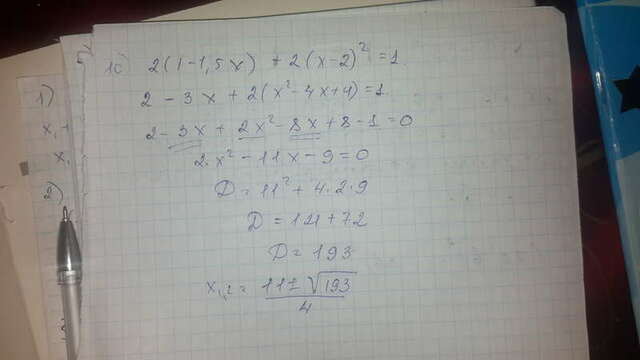 1c) 2(1-1,5x) + 2(x-2)² = 1.
2 - 3x + 2(x² - 4x + 4) = 1.
2 - 3x + 2x² - 8x + 8 - 1 = 0
2x² - 11x - 9 = 0
D = 11² + 4·2·9
D = 121 + 72
D = 193
x₁,₂ = (11 ± √193)/4
1)
x₁
x₁
2)